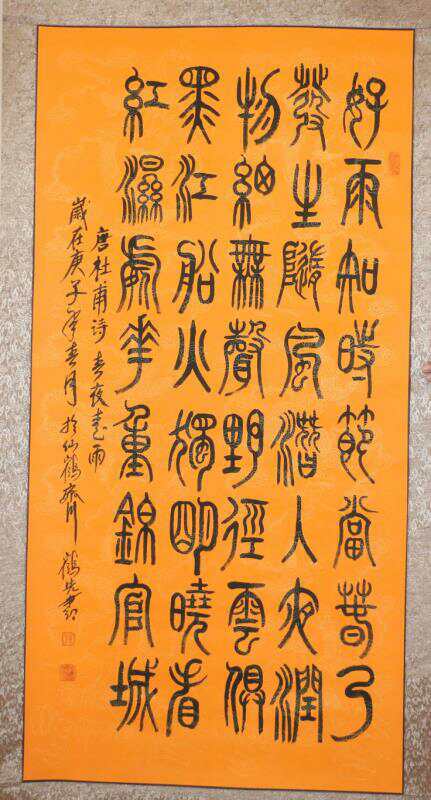 好雨知時節當春乃
發生隨風潛入夜潤
物細無聲野徑雲俱
黑江船火獨明曉看
紅濕處花重錦官城
唐杜甫詩春夜喜雨
歲在庚子年春月於仙鶴齋鶴書